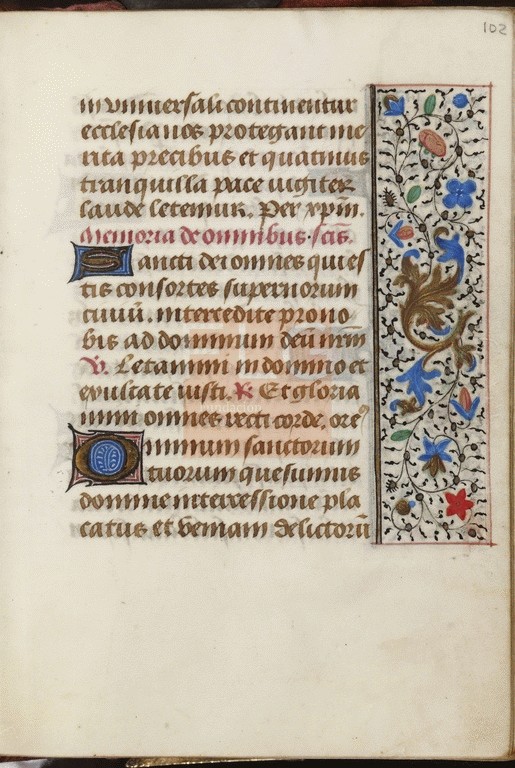 102
in vniuersali continentur
ecclesia nos protegant me
rita precibus et quatinus
tranquilla pace uigiter
laude letemur. Per xpm̄.
Memoria de omnibus scīs.
Sancti dei omnes qui es
tis consortes supernorum
ciuiū. intercedite pro no
bis ad dominum deū nr̄m
V. Letamini in domino et
exultate iusti. R Et gloria
mini omnes recti corde. ore᷒
Omnium sanctorum
tuorum quesumus
domine intercessione pla
catus et veniam delictorū